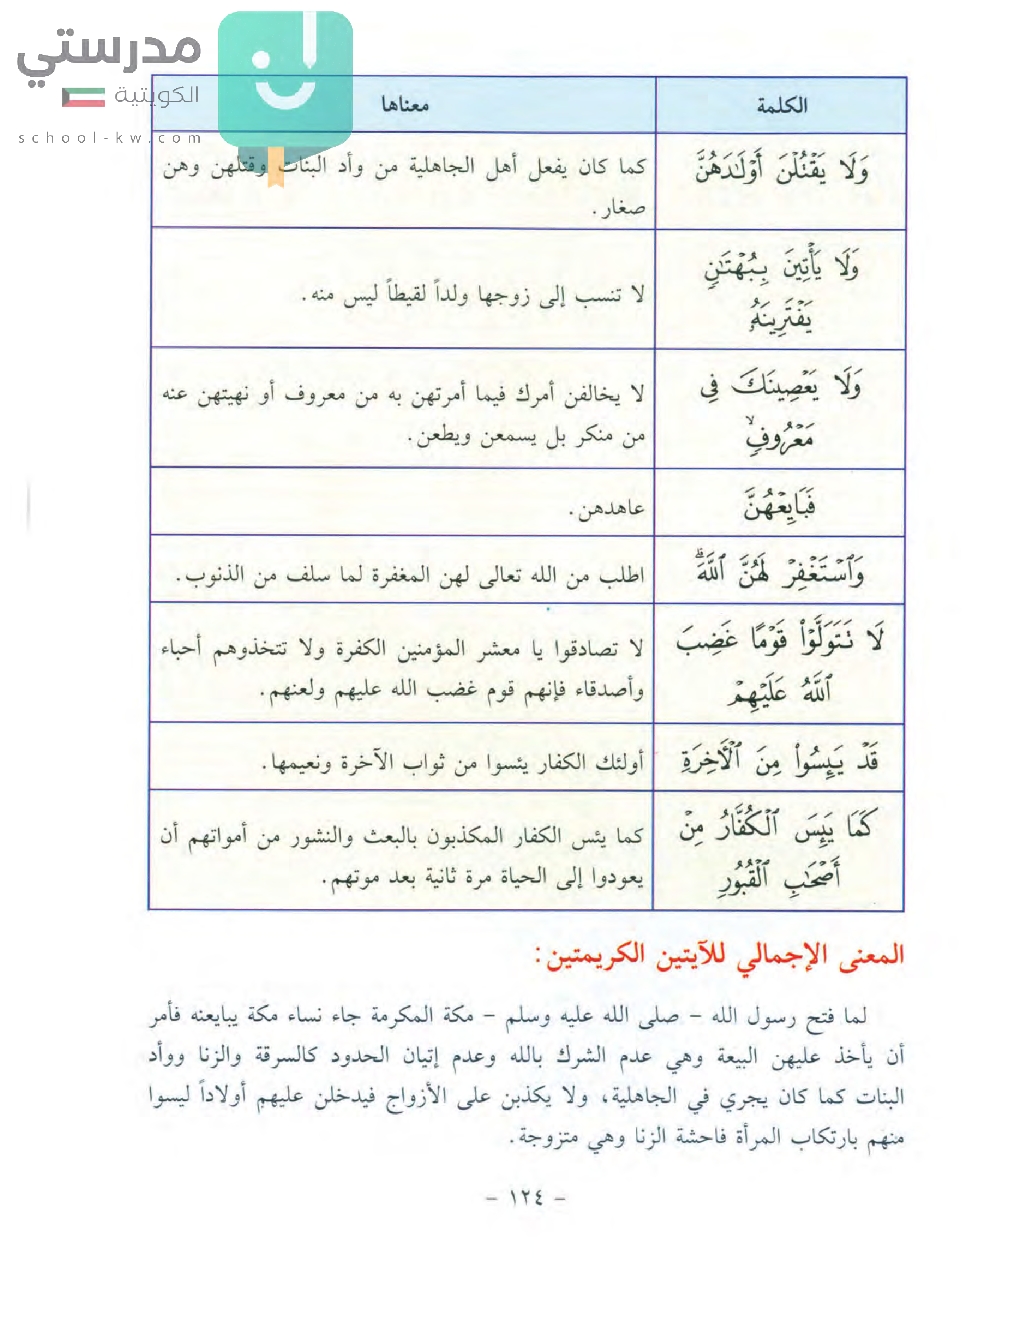 مدرستي
الكويتية
school-kw.com
الكلمة
معناها
وَلَا يَقْتُلْنَ أَوْلَٰدَهُنَّ
كما كان يفعل أهل الجاهلية من وأد البنات وقتلهن وهن
صغار.
وَلَا يَأْتِينَ بِبُهْتَٰنٍ
يَفْتَرِينَهُۥ
لا تنسب إلى زوجها ولداً لقيطاً ليس منه.
وَلَا يَعْصِينَكَ فِى
مَعْرُوفٍ ۙ
لا يخالفن أمرك فيما أمرتهن به من معروف أو نهيتهن عنه
من منكر بل يسمعن ويطعن.
فَبَايِعْهُنَّ
عاهدهن.
وَٱسْتَغْفِرْ لَهُنَّ ٱللَّهَ ۖ
اطلب من الله تعالى لهن المغفرة لما سلف من الذنوب.
لَا تَتَوَلَّوْا۟ قَوْمًا غَضِبَ
ٱللَّهُ عَلَيْهِمْ
لا تصادقوا يا معشر المؤمنين الكفرة ولا تتخذوهم أحباء
وأصدقاء فإنهم قوم غضب الله عليهم ولعنهم.
قَدْ يَئِسُوا۟ مِنَ ٱلْـَٔاخِرَةِ
أولئك الكفار يئسوا من ثواب الآخرة ونعيمها.
كَمَا يَئِسَ ٱلْكُفَّارُ مِنْ
أَصْحَٰبِ ٱلْقُبُورِ
كما يئس الكفار المكذبون بالبعث والنشور من أمواتهم أن
يعودوا إلى الحياة مرة ثانية بعد موتهم.
المعنى الإجمالي للآيتين الكريمتين:
لما فتح رسول الله - صلى الله عليه وسلم - مكة المكرمة جاء نساء مكة يبايعنه فأمر
أن يأخذ عليهن البيعة وهي عدم الشرك بالله وعدم إتيان الحدود كالسرقة والزنا ووأد
البنات كما كان يجري في الجاهلية، ولا يكذبن على الأزواج فيدخلن عليهم أولاداً ليسوا
منهم بارتكاب المرأة فاحشة الزنا وهي متزوجة.
- ١٢٤ -